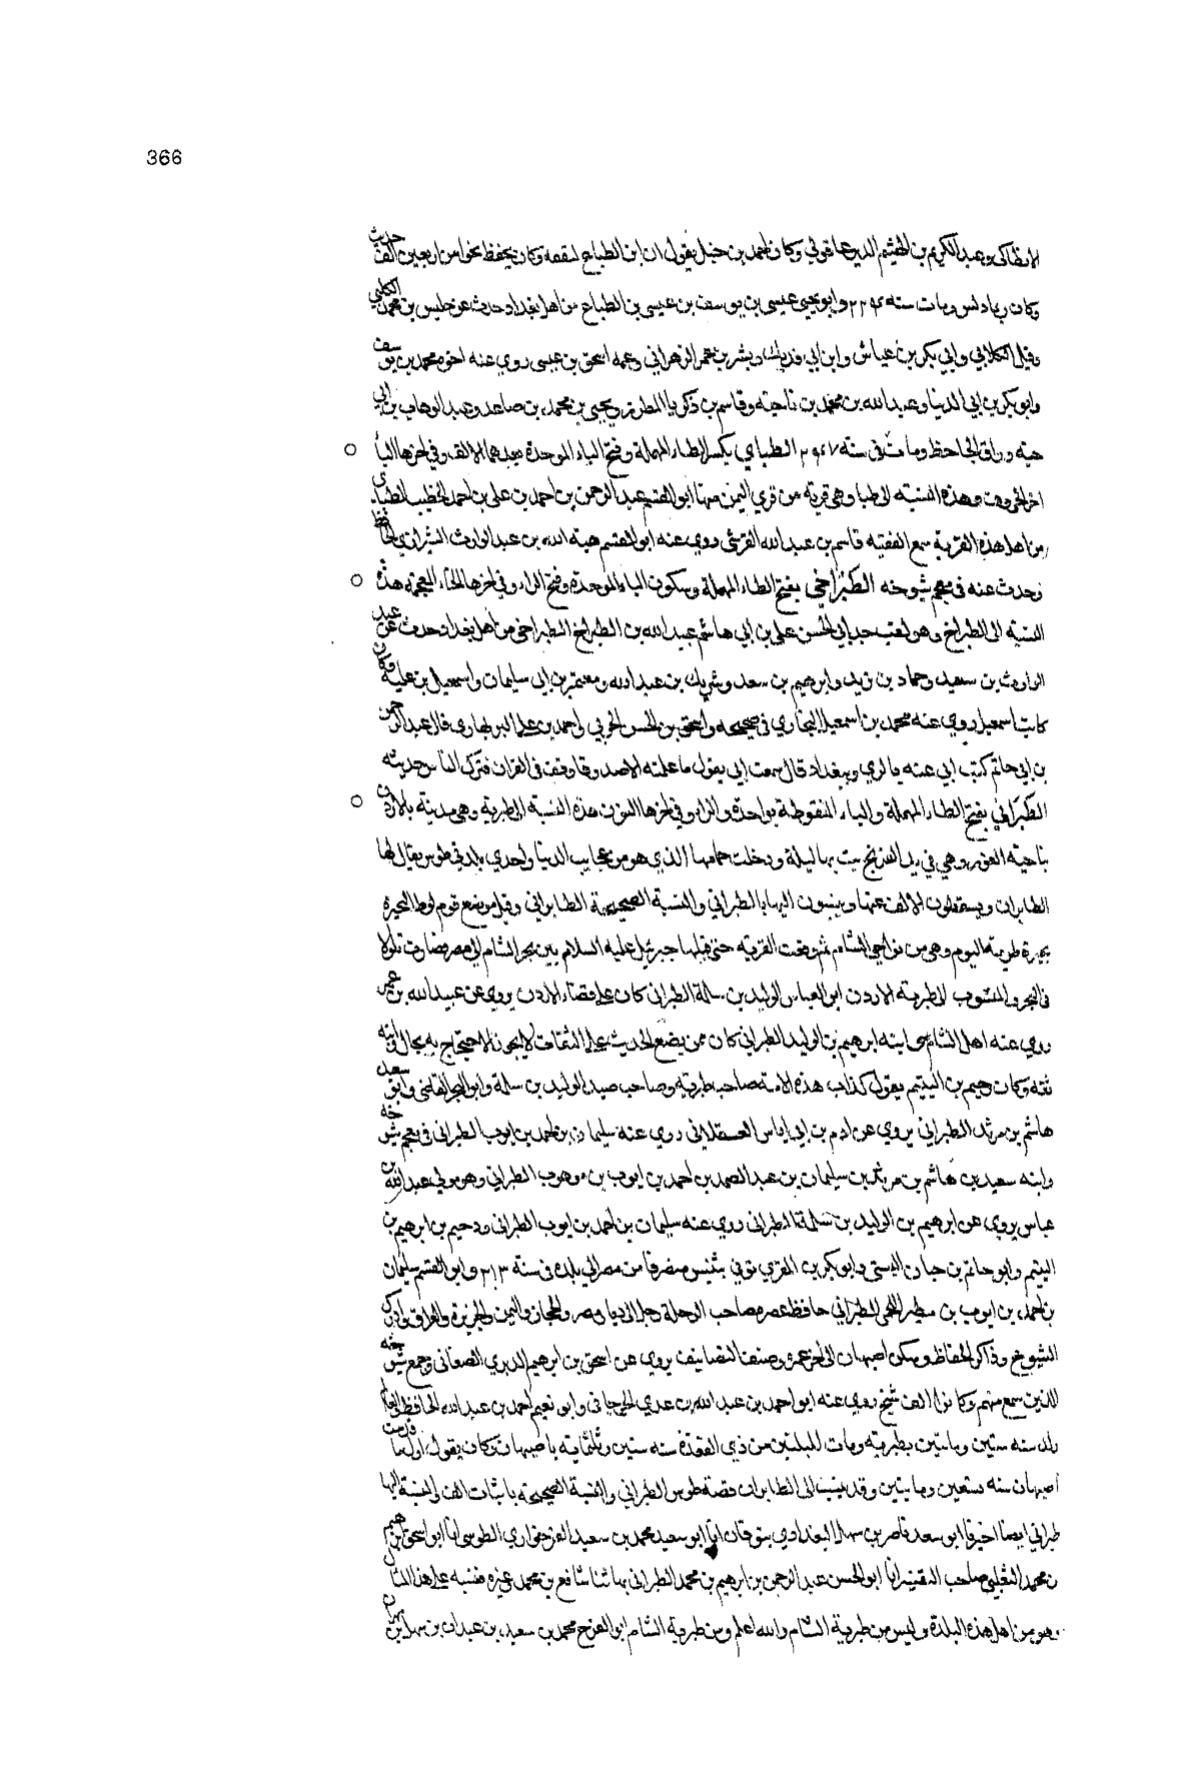 366
الانطاكى وعبد الكريم بن الهيثم الديرعاقولي وكان احمد بن حنبل يقول ان ابن الطباع لثقة وكان يحفظ نحوا من اربعين الف حديث
وكان ربما دلس ومات سنه ٢٢٤ وابو يحيى عيسى بن يوسف بن عيسى بن الطباع من اهل بغداد حدث عن حلبس بن محمد الكلبي
وقيل الكلابي وابي بكر بن عياش وابن ابي فديك وبشر بن عمر الزهراني وعمه اسحق بن عيسى روي عنه اخوه محمد بن يوسف
وابو بكر بن ابي الدنيا وعبد الله بن محمد بن ناجيه وقاسم بن زكريا المطرز ويحيى بن محمد بن صاعد وعبد الوهاب بن ابي
حيه وراق الجاحظ ومات في سنه ٢٤٧ الطباي بكسر الطاء المهملة وفتح الباء الموحدة بعدهما الالف وفي اخرها اليا
اخر الحروف هذه النسبه الى طبا وهي قريه من قري اليمن منها ابو القسم عبد الرحمن بن احمد بن علي بن احمد الخطيب الطباى
من اهل هذه القرية سمع الفقيه قاسم بن عبد الله القرشي روي عنه ابو القسم هبة الله بن عبد الوارث الشيرازي الحافظ
وحدث عنه في معجم شيوخه الطبراخي بفتح الطاء المهملة وسكون الباء الموحدة وفتح الراء وفي اخرها الخاء المعجمة هذه
النسبه الى الطبراخ وهو لقب جد ابي الحسن علي بن ابي هاشم عبيد الله بن الطبراخ الطبراخي من اهل بغداد حدث عن عبد
الوارث بن سعيد وحماد بن زيد وابرهيم بن سعد وشريك بن عبد الله ومعتمر بن ابي سليمان واسمعيل بن علية وكان
كاتب اسمعيل روي عنه محمد بن اسمعيل البخاري في صحيحه واسحق بن الحسن الحربي واحمد بن علي البربهاري قال عبد الرحمن
بن ابي حاتم كتب ابي عنه بالري وببغداد قال سمعت ابي يقول ما علمته الا صدوقا وقف في القران فترك الناس حديثه
الطبراني بفتح الطاء المهملة والباء المنقوطة بواحدة والراء وفي اخرها النون هذه النسبة الى طبرية وهي مدينه بالاردن
بناحيه الغور وهي في يد الفرنج بت بها ليلة ودخلت حمامها الذي هو من عجايب الدنيا واحدي بلدتي طوس يقال لها
الطابران ويسقطون الالف عنها وينسبون اليها بالطبراني والنسبة الصحيحة الطابراني وقيل موضع قوم لوط البحيرة
بحيرة طبرية اليوم وهي من نواحي الشام ثم رفعت القريه حتى قلبها جبرئيل عليه السلام بين بحر الشام الى مصر فصارت تلولا
في البحر والمنسوب الى طبرية الاردن ابو العباس الوليد بن سلمة الطبراني كان علي قضاء الاردن يروي عن عبيد الله بن عمر
روي عنه اهل الشام حى ابنه ابرهيم بن الوليد الطبراني كان ممن يضع الحديث علي الثقات لا يجوز الاحتجاج به بحال وابنه
ثقه وكان دحيم بن اليتيم يقول كذاب هذه الامة صاحب طبرية وصاحب صيدا الوليد بن سلمة وابو البختري القاضي وابو سعيد
هاشم بن مرثد الطبراني يروي عن ادم بن ابي اياس العسقلاني روي عنه سليمان بن احمد بن ايوب الطبراني في معجم شيوخه
وابنه سعيد بن هاشم بن مرثد بن سليمان بن عبد الصمد بن احمد بن ايوب بن موهوب الطبراني وهو مولي عبد الله بن
عباس يروي عن ابرهيم بن الوليد بن سلمة الطبراني روي عنه سليمان بن احمد بن ايوب الطبراني ودحيم بن ابرهيم بن
اليتيم وابو حاتم بن حبان البستي وابو بكر بن المقري توفي بتنيس منصرفا من مصر الى بلده في سنة ٣١٣ وابو القسم سليمان
بن احمد بن ايوب بن مطير اللخمي الطبراني حافظ عصره صاحب الرحلة رحل الى ديار مصر والحجاز واليمن والجزيرة والعراق وادرك
الشيوخ وذاكر الحفاظ وسكن اصبهان الى اخر عمره وصنف التصانيف يروي عن اسحق بن ابرهيم الدبري الصنعاني وجمع شيوخه
الذين سمع منهم وكانوا الف شيخ روي عنه ابو احمد بن عبد الله بن عدي الجرجاني وابو نعيم احمد بن عبد الله الحافظ
ولد سنه ستين ومايتين بطبريه ومات لليلتين من ذي القعدة سنه ستين وثلثمايه باصبهان وكان يقول اول ما قدمت
اصبهان سنه تسعين ومايتين وقد ينسب الى الطابران قصبة طوس الطبراني والنسبة الصحيحة باثبات الف والنسبة اليها
طبراني ايضا اخبرنا ابو سعد ناصر بن سهل البغدادي بنوقان انا ابو سعيد محمد بن سعيد الفرخزادي الطوسي انا ابو اسحق ابرهيم
بن محمد الثعلبي صاحب التفسير انا ابو الحسن عبد الرحمن بن ابرهيم بن محمد الطبراني بها ثنا شافع بن محمد وغيره فنسبه علي هذا المثال
وهو من اهل هذه البلدة وليس من طبرية الشام والله اعلم ومن طبرية الشام ابو الفرج محمد بن سعيد بن عبدان بن سهلان بن